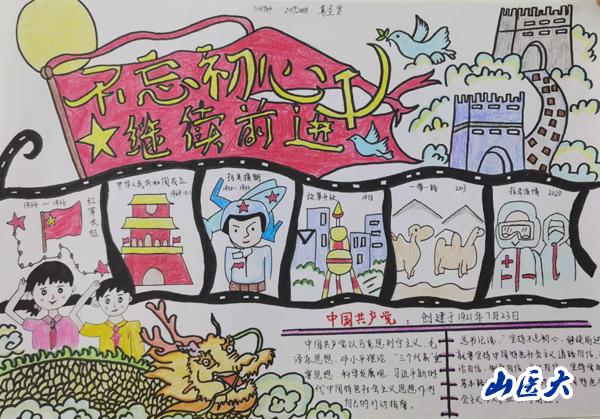 不忘初心
继续前进
1934-1936
红军长征
中华人民共和国成立
1949.10.1
抗美援朝
1950-1953
改革开放
1978
一带一路
2013
抗击疫情
2020
中国共产党：创建于1921年7月23日
中国共产党以马克思列宁主义、毛
泽东思想、邓小平理论、“三个代表”重
要思想、科学发展观、习近平新时
代中国特色社会主义思想作为
自己的行动指南。
总书记说：“坚持不忘初心、继续前进
山医大